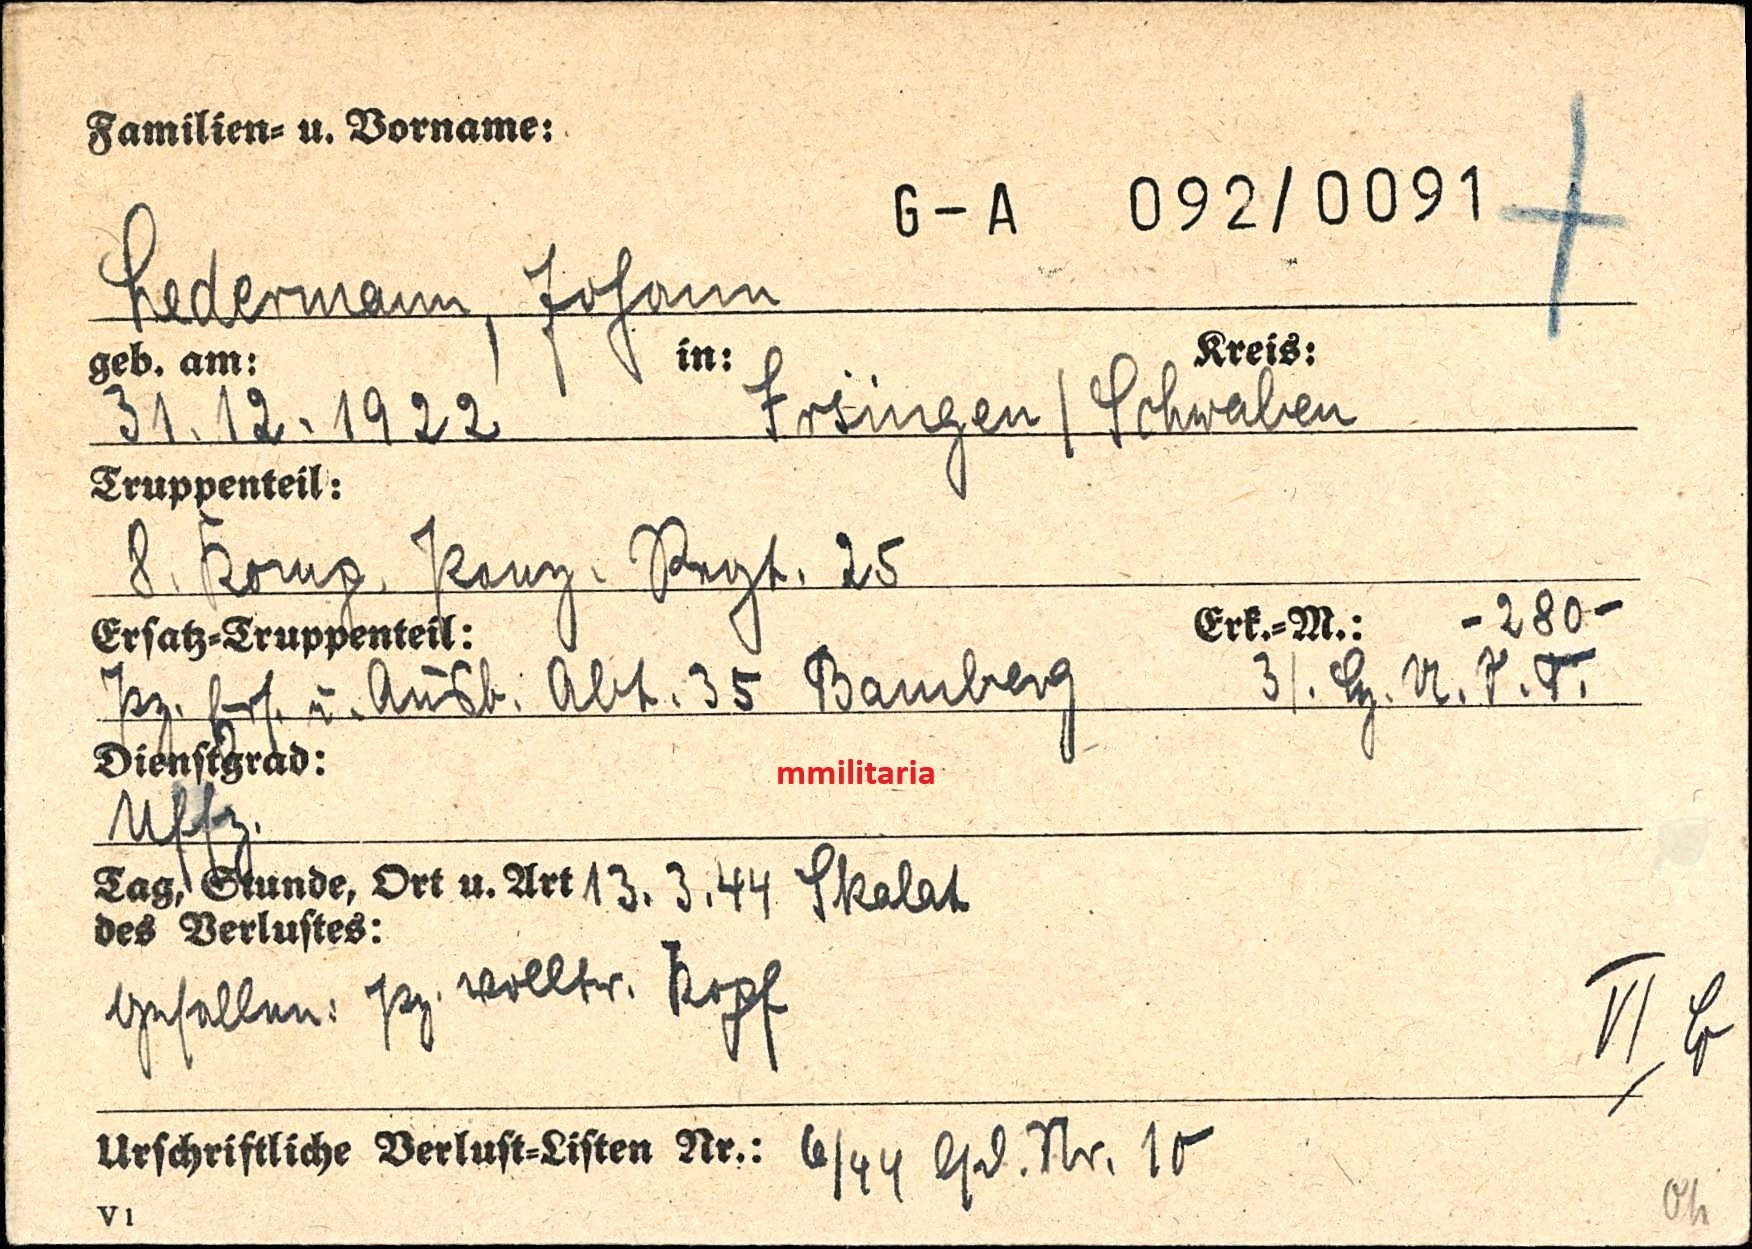 Familien- u. Vorname:
G-A 092/0091
Ledermann, Johann
geb. am: in: Kreis:
31.12.1922 Irsingen / Schwaben
Truppenteil:
8. Komp. Panz. Regt. 25
Ersatz-Truppenteil: Erk.-M.: -280-
Pz. Ers. u. Ausb. Abt. 35 Bamberg 3/.
Dienstgrad:
mmilitaria
Uffz.
Tag, Stunde, Ort u. Art 13.3.44 Skalat
des Verlustes:
Gefallen: Pz. Volltr. Kopf
VI
Urschriftliche Verlust-Listen Nr.: 6/44 lfd. Nr. 10
V 1